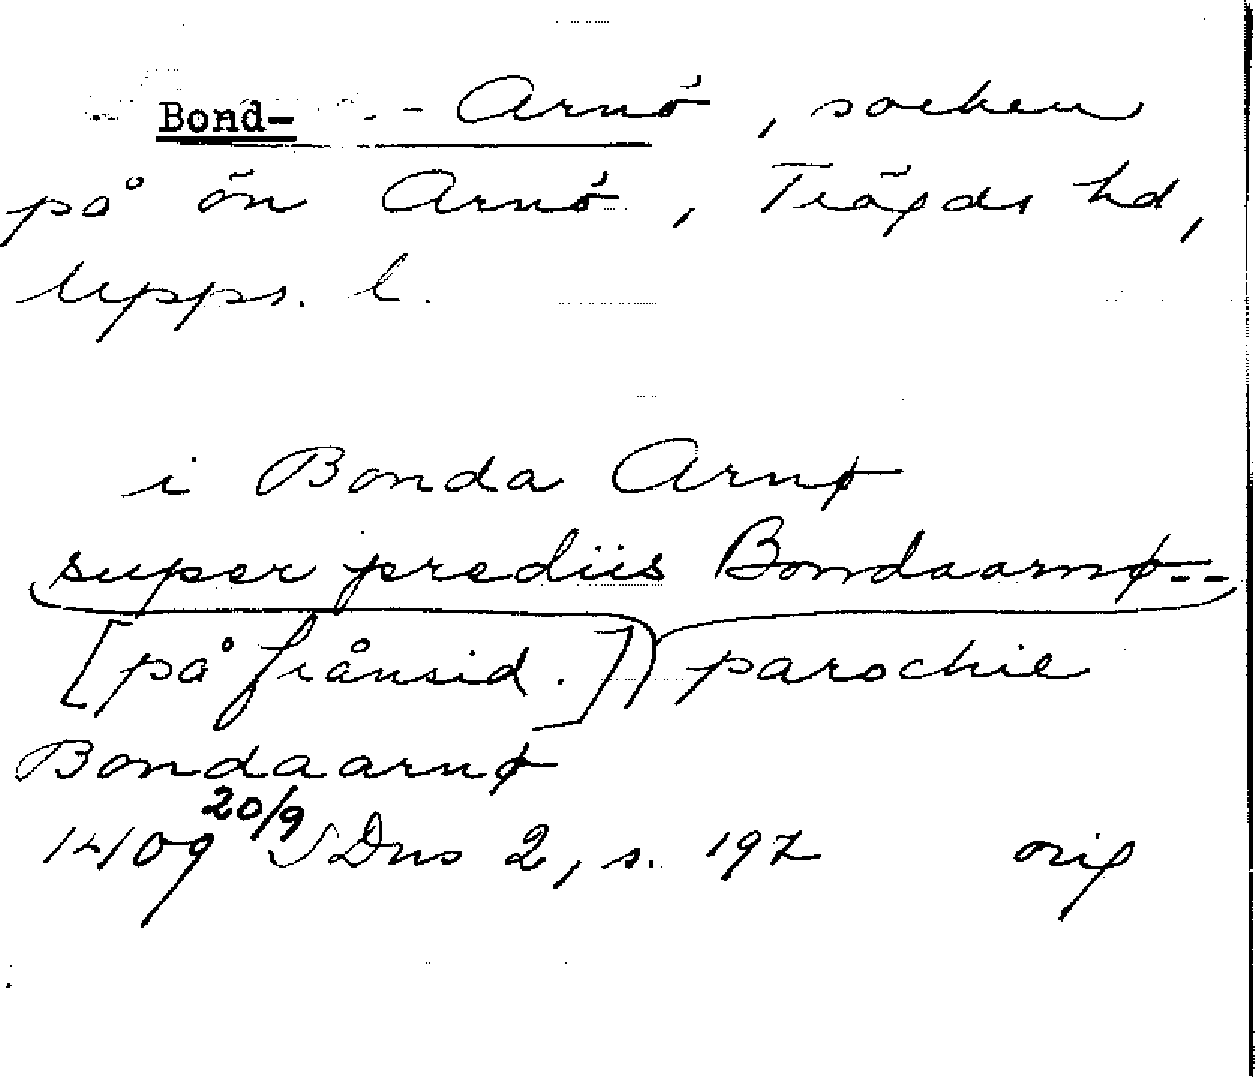 Bond- - Arnö, socken
på ön Arnö, Trögds hd,
Upps. l.
i Bonda Arnø
super prediis Bondaarnø--
[på frånsid.] parochie
Bondaarnø
1409 20/9 SDns 2, s. 197 orig